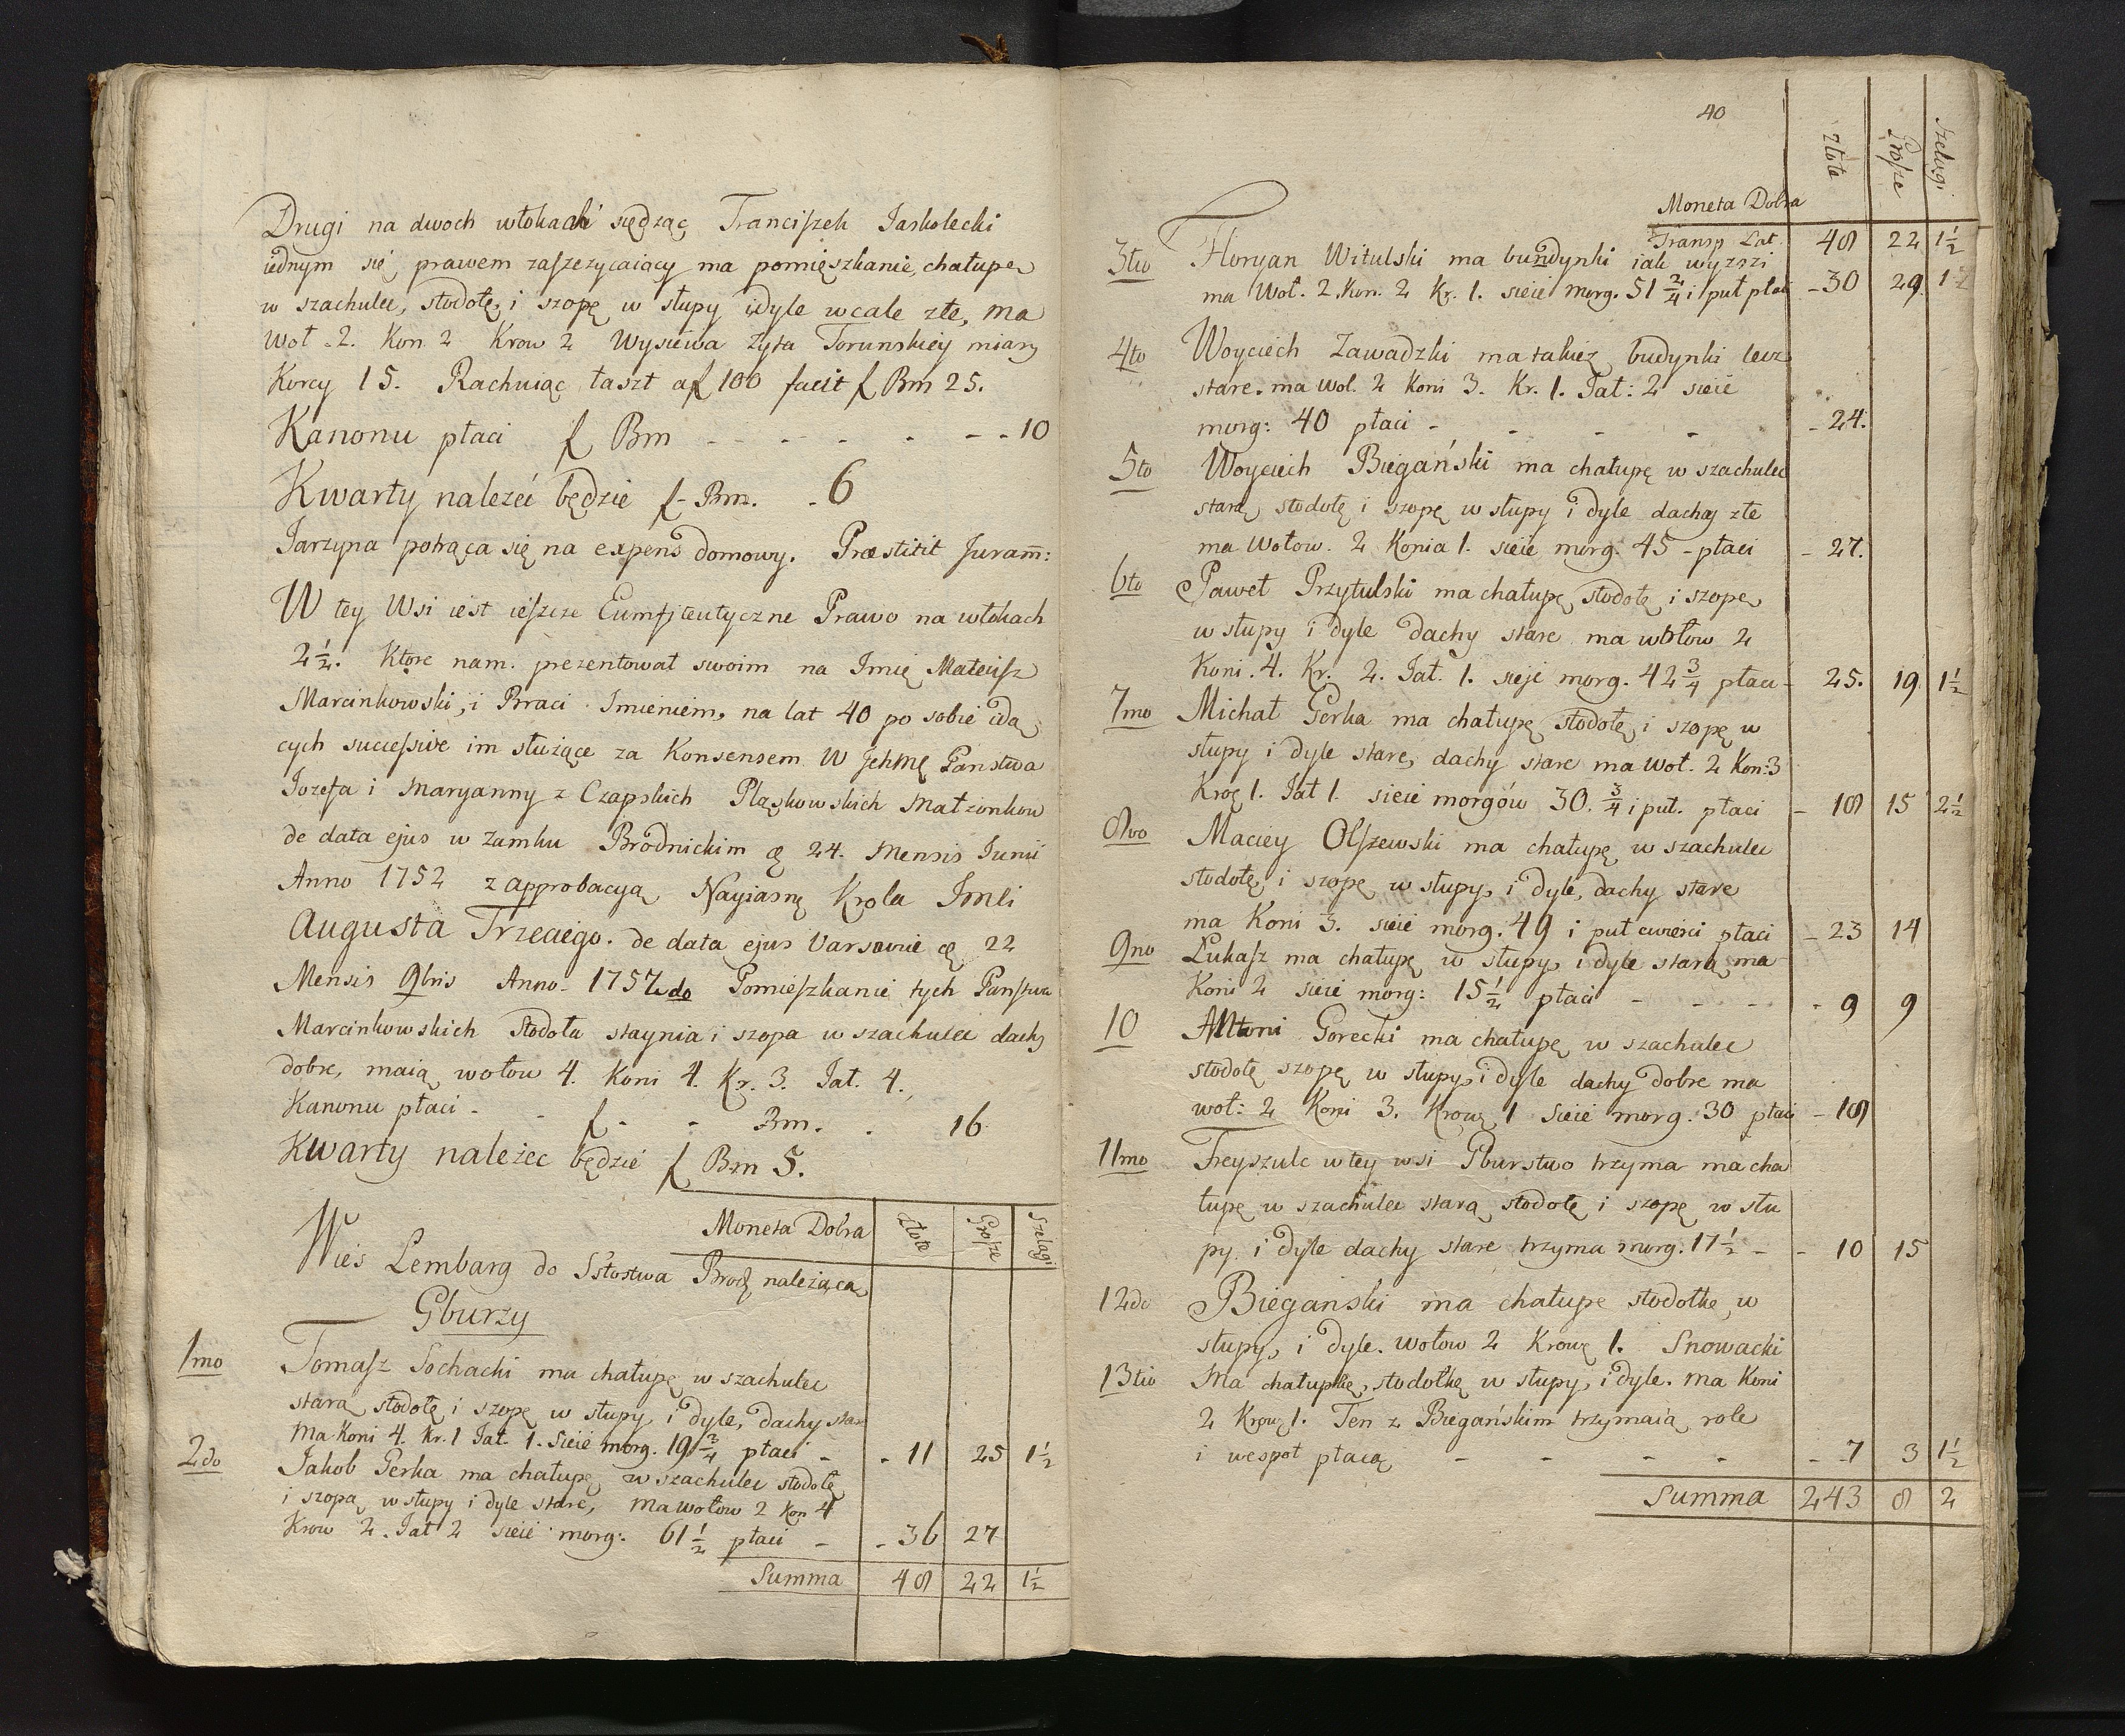 Drugi na dwoch włokach siędząc Franciszek Jaskolecki
iednym się prawem zaszczycaiący ma pomięszkanie, chałupę
w szachulec, stodołę, i szopę w słupy i dyle wcale złe, ma
Woł. 2. Kon 2 Krow 2 Wysiewa Zyta Torunskiey miary
Korcy 15. Rachuiąc łaszt a f 100 facit f Bm 25.
Kanonu płaci f Bm - - - - - - 10
Kwarty nalezeć będzie f Bm. - 6
Jarzyna potrąca się na expens domowy. Præstitit Juram:
W tey Wsi iest ieszcze Eumfiteutyczne Prawo na włokach
2 1/2. Ktore nam prezentował swoim na Imię Mateusz
Marcinkowski, i Braci Imieniem, na lat 40 po sobie idą
cych successive im służące za Konsensem W Jchmę Panstwa
Jozefa i Maryanny z Czapskich Pląskowskich Małzonkow
de data ejus w Zamku Brodnickim 24. Mensis Junii
Anno 1752 z approbacyą Nayiasnę Krola Jmci
Augusta Trzeciego. de data ejus Varsavie 22
Mensis 9bris Anno 1757do Pomieszkanie tych Panstwa
Marcinkowskich Stodoła staynia i szopa w szachulec dachy
dobre, maią wołow 4. Koni 4. Kr. 3. Jał. 4.
Kanonu płaci - - f - - Bm. - 16
Kwarty nalezec będzié f Bm 5.
Moneta Dobra złote Grosze Szelągi
Wieś Lembarg do Sstostwa Brod należąca
Gburzy
1mo Tomasz Sochacki ma chałupę w szachulec
starą stodołę i szopę w słupy i dyle, dachy stare
Ma Koni 4. Kr. 1 Jał. 1. Sieie morg. 19 3/4 płaci - - 11 25 1 1/2
2do Jakob Gerka ma chałupę w szachulec stodołę
i szopą w słupy i dyle stare, ma wołow 2 Kon 4
Krow 2. Jał 2 sieie morg: 61 1/2 płaci - - 36 27
Summa 48 22 1 1/2
40
złote Grosze Szelągi
Moneta Dobra
Transp Lat. 48 22 1 1/2
3tio Floryan Witulski ma bundynki iak wyzszi
ma Woł. 2. Kon. 2 Kr. 1. sieie morg. 51 2/4 i puł płaci - 30 29 1 1/2
4to Woyciech Zawadzki ma takiez budynki lecz
stare. ma wol. 2 Koni 3. Kr. 1. Jał: 2 sieie
morg: 40 płaci - - - - - 24.
5to Woyciech Biegański ma chałupę w szachulec
starą stodołę i szopę w słupy i dyle dachy złe
ma Wołow. 2 Konia 1. sieie morg. 45 - płaci - 27.
6to Paweł Przytulski ma chałupę, stodołę i szopę
w słupy i dyle dachy stare ma wołow 2
Koni. 4. Kr. 2. Jał. 1. sieje morg. 42 3/4 płaci - 25. 19 1 1/2
7mo Michał Gerka ma chałupę, stodołę, i szopę w
słupy i dyle stare, dachy stare ma woł. 2 Kon: 3
Krog 1. Jał 1. sieie morgów 30. 3/4 i puł. płaci - 18 15 2 1/2
8vo Maciey Olszewski ma chałupę w szachulec
stodołę i szopę w słupy, i dyle, dachy stare
ma Koni 3. sieie morg. 49 i puł cwierci płaci - 23 14
9no Łukasz ma chałupę w słupy, i dyle starą, ma
Koni 2 sieie morg: 15 1/2 płaci - - - - 9 9
10 Antoni Gorecki ma chałupę w szachulec
stodołę szopę w słupy, i dyle dachy dobre ma
woł: 2 Koni 3. Krowę 1 Sieie morg. 30 płaci - 18
11mo Freyszulc w tey wsi Gburstwo trzyma ma cha
łupę w szachulec starą stodołę i szopę w słu
py i dyle dachy stare trzyma morg. 17 1/2 - - 10 15
12do Bieganski ma chałupe stodołkę w
słupy, i dyle. wołow 2 Krowę 1. Snowacki
13tio Ma chałupkę, stodołkę w słupy, i dyle. ma Koni
2 Krowę 1. Ten z Biegańskim trzymaią role
i wespoł płacą - - - - - 7 3 1 1/2
Summa 243 8 2